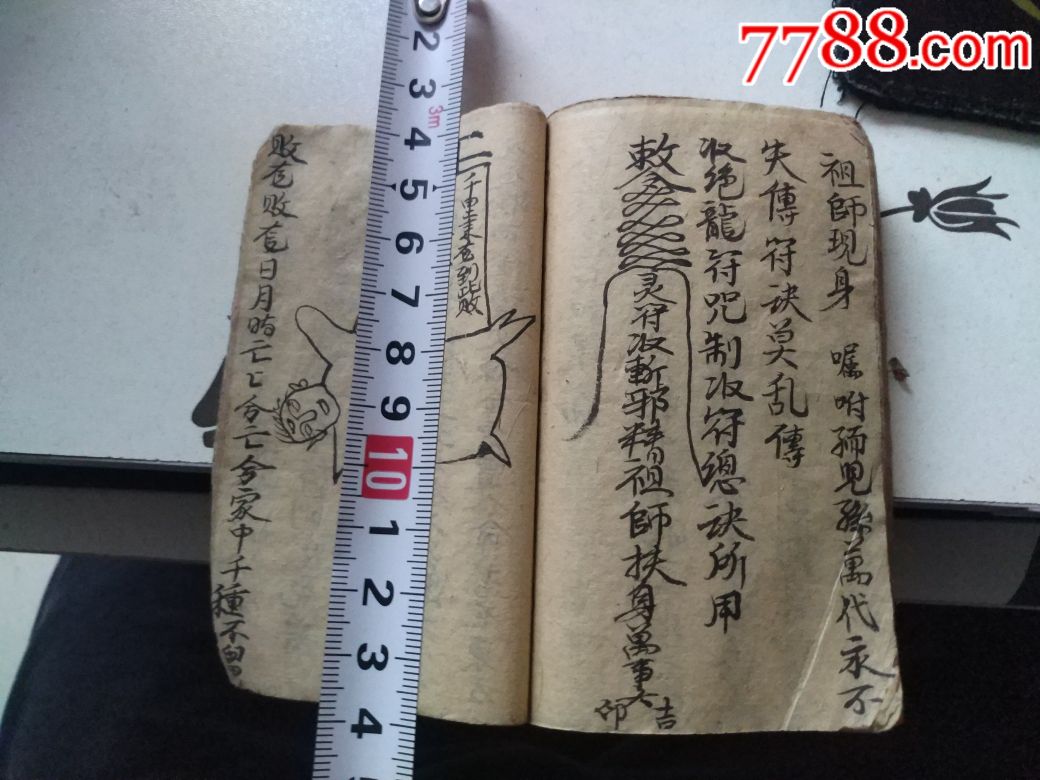 7788.com
祖師現身 嘱咐 兒孫萬代永不
失傳符訣莫乱傳
收絕龍符咒制收符總訣所用
敕令
灵符收斬邪精祖師扶身萬事大吉
印
二
到此敗
敗 敗 日月時亡 亡 家中千種不留
2 3 3m 4 5 6 7 8 9 10 1 2 3 4 5